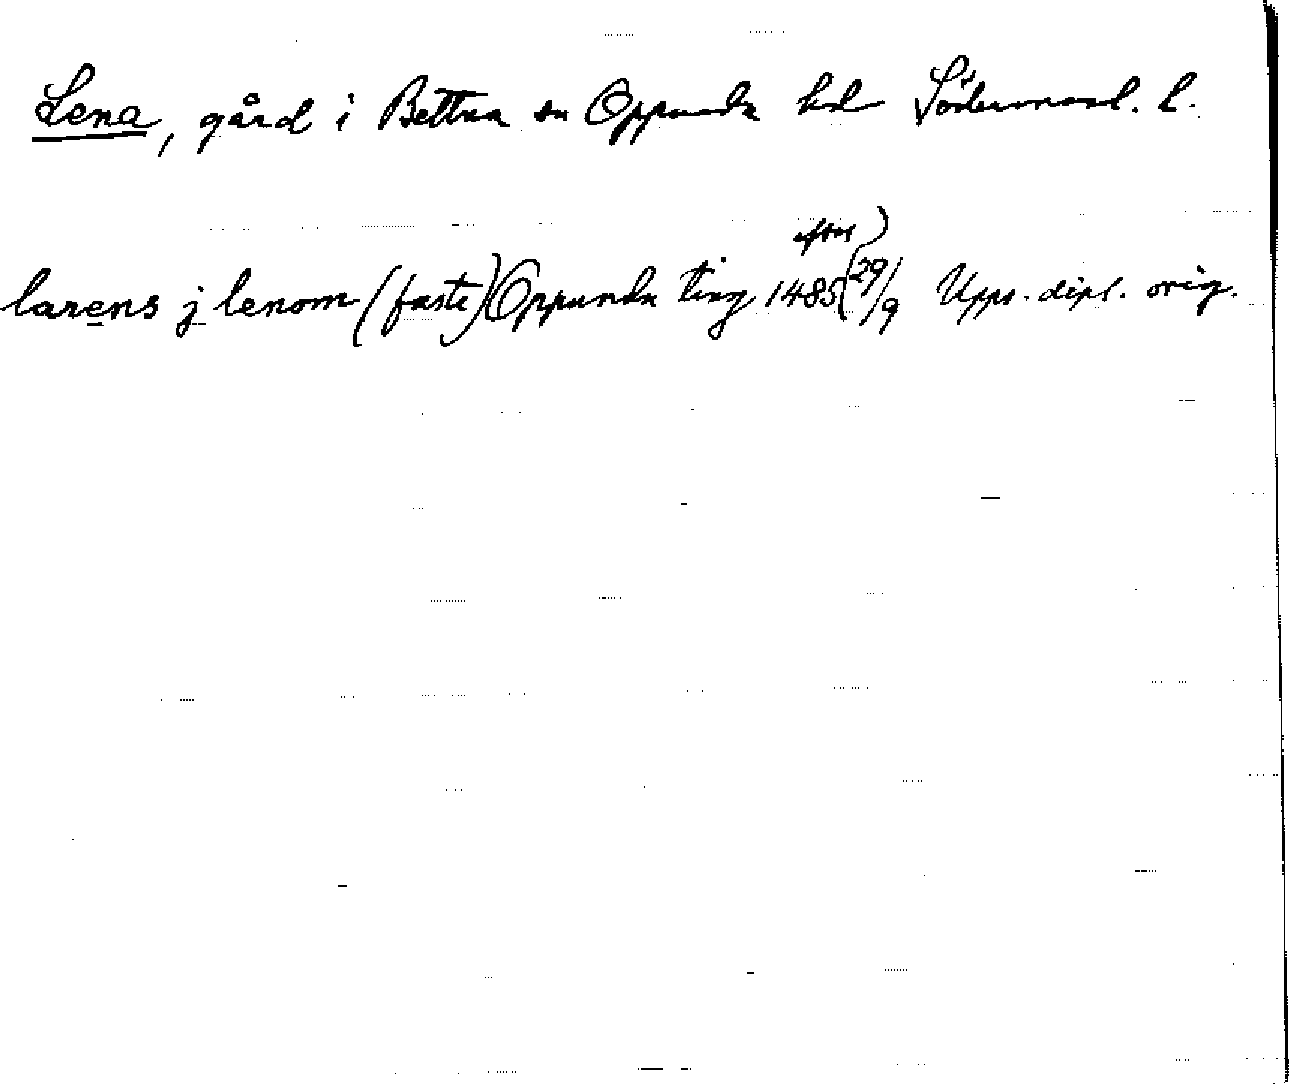 Lena, gård i Bettna sn Oppunda hd Södermanl. l.
efter)
larens j lenom (faste) Oppunda ting 1485 (29/9 Upps. dipl. orig.